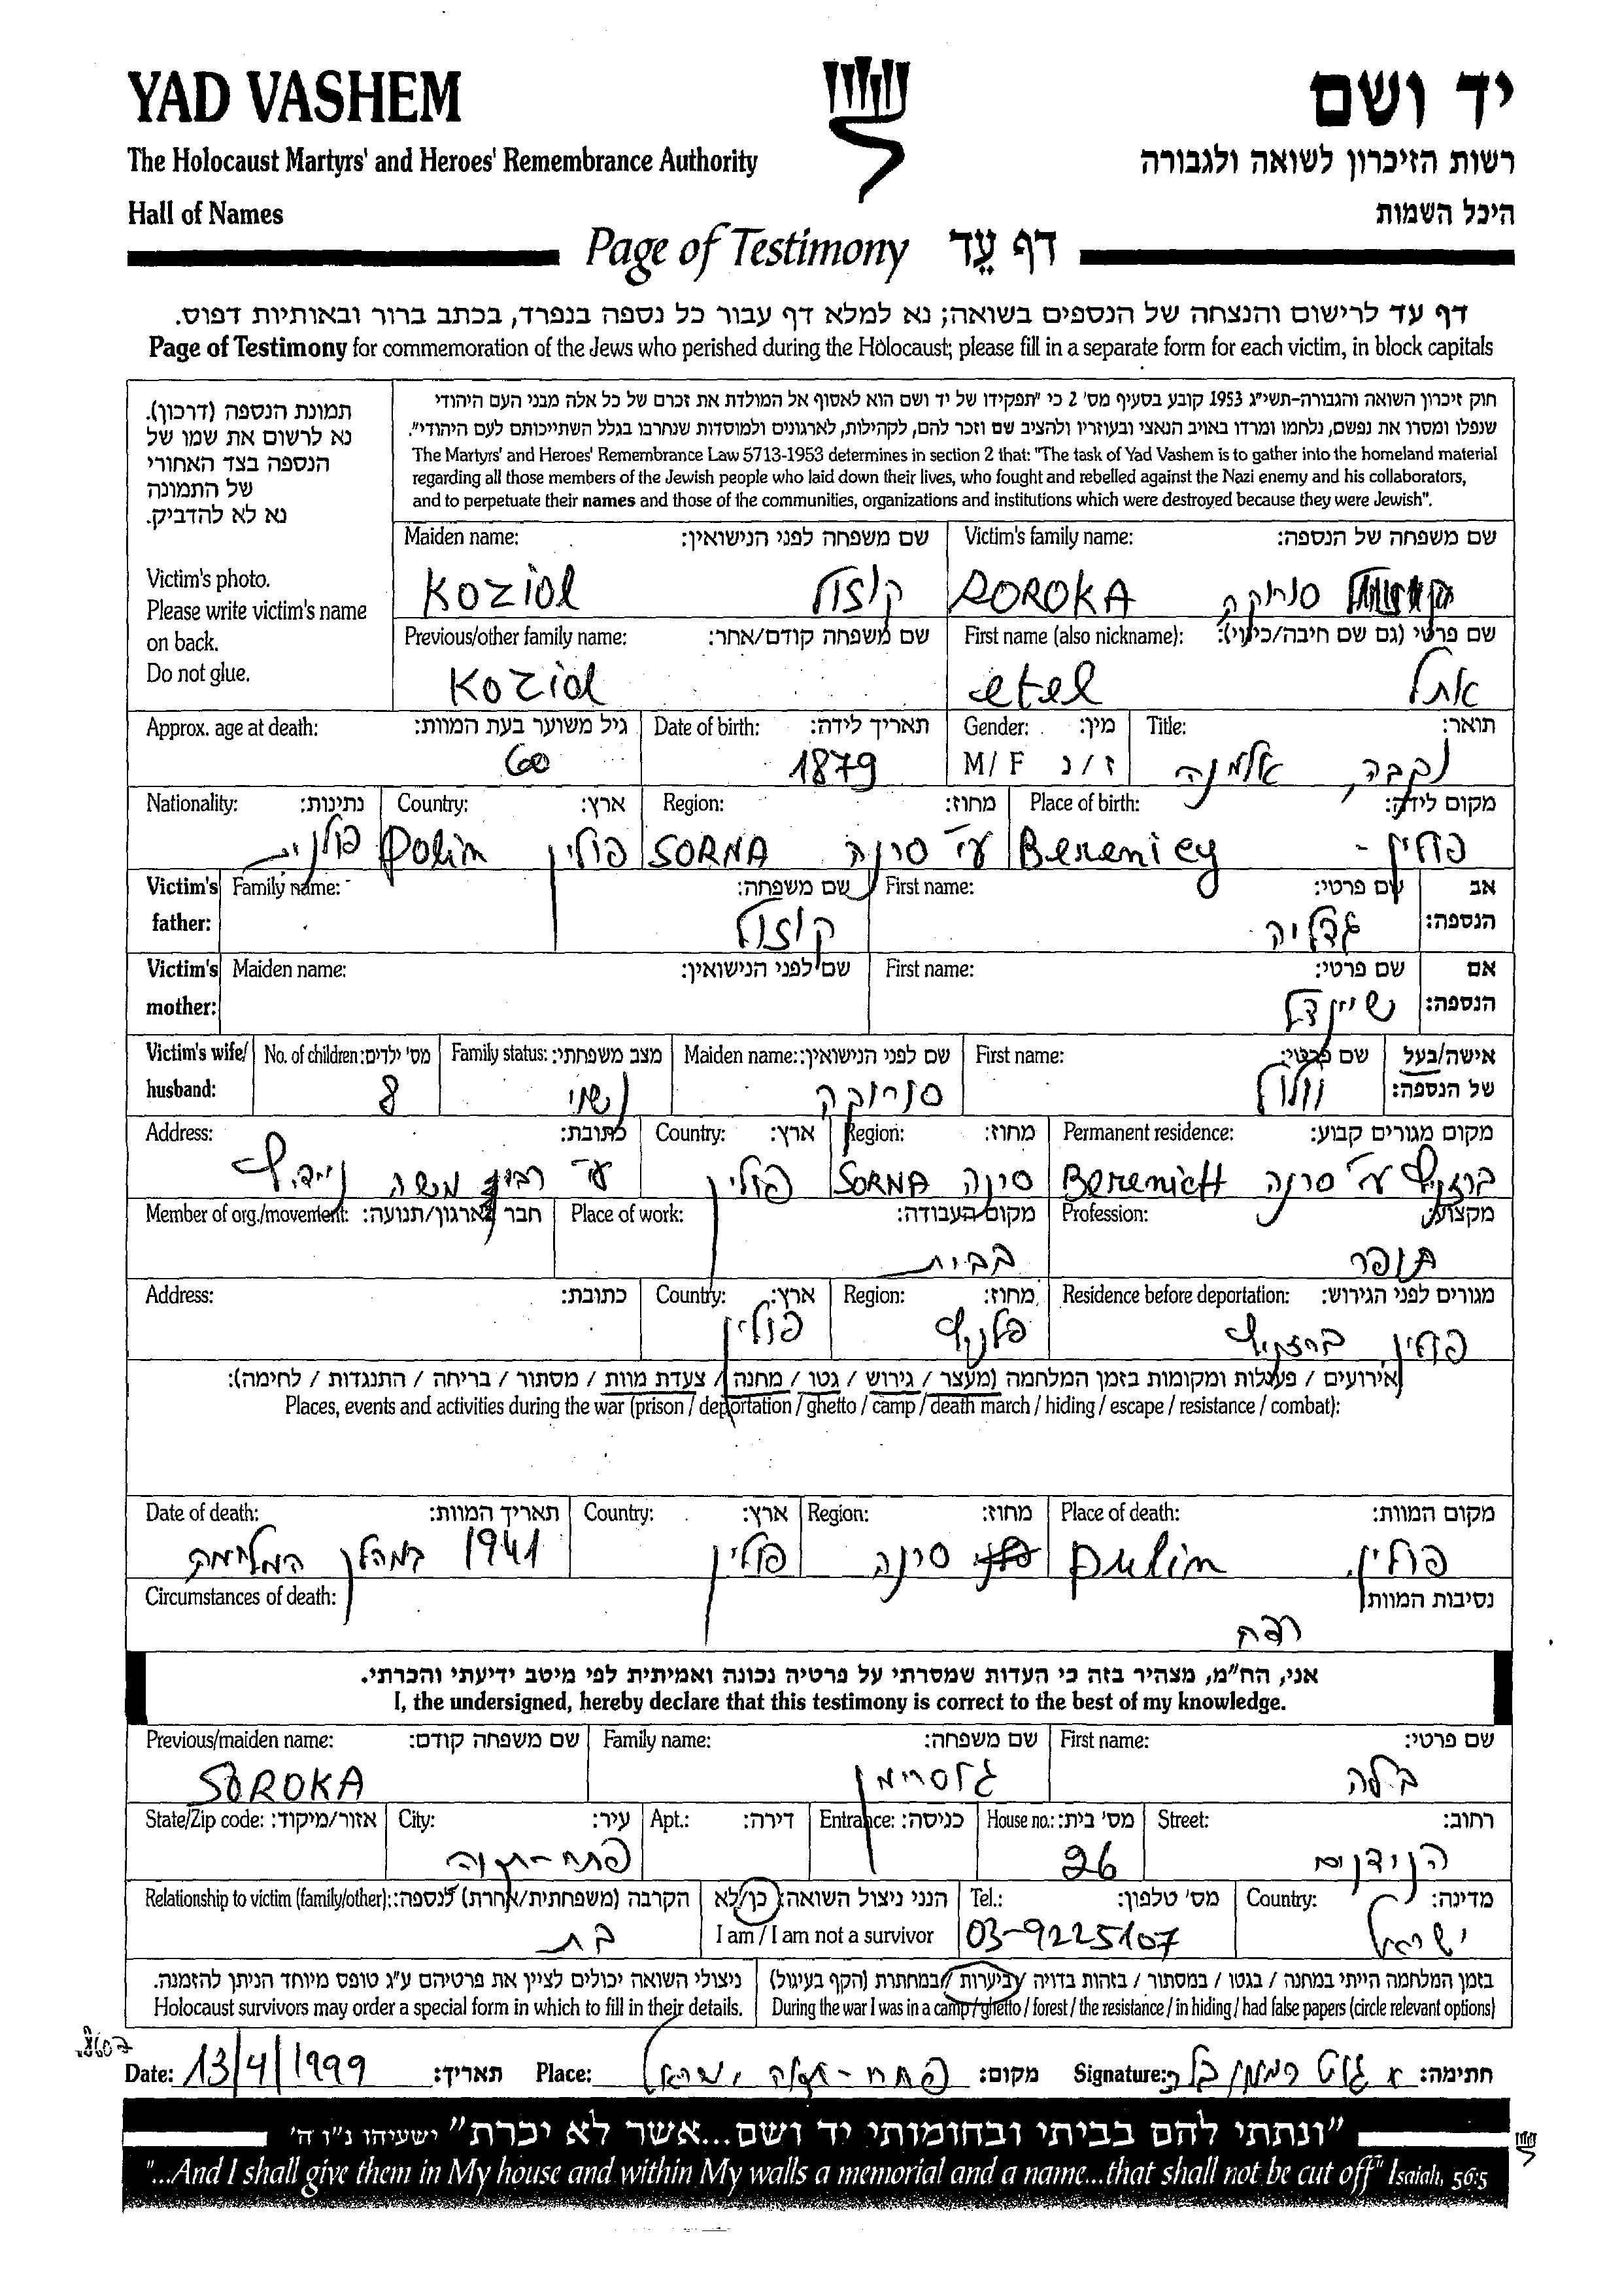 YAD VASHEM
יד ושם
The Holocaust Martyrs' and Heroes' Remembrance Authority
רשות הזיכרון לשואה ולגבורה
Hall of Names
היכל השמות
Page of Testimony דף עֵד
דף עד לרישום והנצחה של הנספים בשואה; נא למלא דף עבור כל נספה בנפרד, בכתב ברור ובאותיות דפוס.
Page of Testimony for commemoration of the Jews who perished during the Holocaust; please fill in a separate form for each victim, in block capitals
תמונת הנספה (דרכון).
נא לרשום את שמו של
הנספה בצד האחורי
של התמונה
נא לא להדביק.
Victim's photo.
Please write victim's name
on back.
Do not glue.
חוק זיכרון השואה והגבורה-תשי"ג 1953 קובע בסעיף מס' 2 כי "תפקידו של יד ושם הוא לאסוף אל המולדת את זכרם של כל אלה מבני העם היהודי
שנפלו ומסרו את נפשם, נלחמו ומרדו באויב הנאצי ובעוזריו ולהציב שם וזכר להם, לקהילות, לארגונים ולמוסדות שנחרבו בגלל השתייכותם לעם היהודי".
The Martyrs' and Heroes' Remembrance Law 5713-1953 determines in section 2 that: "The task of Yad Vashem is to gather into the homeland material
regarding all those members of the Jewish people who laid down their lives, who fought and rebelled against the Nazi enemy and his collaborators,
and to perpetuate their names and those of the communities, organizations and institutions which were destroyed because they were Jewish".
Maiden name: שם משפחה לפני הנישואין: Victim's family name: שם משפחה של הנספה:
Koziol קוזול ROROKA סורוקה
Previous/other family name: שם משפחה קודם/אחר: First name (also nickname): שם פרטי (גם שם חיבה/כינוי):
Koziol etel אתל
Approx. age at death: גיל משוער בעת המוות: Date of birth: תאריך לידה: Gender: מין: Title: תואר:
60 1879 M/ F ז / נ נקבה, אלמנה
Nationality: נתינות: Country: ארץ: Region: מחוז: Place of birth: מקום לידה:
Polin פולין SORNA ע"י סרנה Berenicy פולין -
Victim's father: Family name: שם משפחה: First name: שם פרטי: אב הנספה:
קוזול גדליה
Victim's mother: Maiden name: שם לפני הנישואין: First name: שם פרטי: אם הנספה:
שיינדל
Victim's wife/ husband: No. of children: מס' ילדים: Family status: מצב משפחתי: Maiden name: שם לפני הנישואין: First name: שם פרטי: אישה/בעל של הנספה:
8 נשוי סורוקה וולול
Address: כתובת: Country: ארץ: Region: מחוז: Permanent residence: מקום מגורים קבוע:
פולין SORNA סרנה BerenicH ע"י סרנה
Member of org./movement: חבר בארגון/תנועה: Place of work: מקום העבודה: Profession: מקצוע:
בבית תופר
Address: כתובת: Country: ארץ: Region: מחוז: Residence before deportation: מגורים לפני הגירוש:
פולין פולין
אירועים / פעולות ומקומות בזמן המלחמה (מעצר / גירוש / גטו / מחנה / צעדת מוות / מסתור / בריחה / התנגדות / לחימה):
Places, events and activities during the war (prison / deportation / ghetto / camp / death march / hiding / escape / resistance / combat):
Date of death: תאריך המוות: Country: ארץ: Region: מחוז: Place of death: מקום המוות:
1941 במהלך המלחמה פולין סרנה pulin פולין
Circumstances of death: נסיבות המוות:
רצח
אני, הח"מ, מצהיר בזה כי העדות שמסרתי על פרטיה נכונה ואמיתית לפי מיטב ידיעתי והכרתי.
I, the undersigned, hereby declare that this testimony is correct to the best of my knowledge.
Previous/maiden name: שם משפחה קודם: Family name: שם משפחה: First name: שם פרטי:
SOROKA בלה
State/Zip code: אזור/מיקוד: City: עיר: Apt.: דירה: Entrance: כניסה: House no.: מס' בית: Street: רחוב:
פתח-תקוה 26
Relationship to victim (family/other): הקרבה (משפחתית/אחרת) לנספה: הנני ניצול השואה: כן/לא Tel.: מס' טלפון: Country: מדינה:
בת I am / I am not a survivor 03-9225107 ישראל
ניצולי השואה יכולים לציין את פרטיהם ע"ג טופס מיוחד הניתן להזמנה. בזמן המלחמה הייתי במחנה / בגטו / במסתור / בזהות בדויה / ביערות / במחתרת (הקף בעיגול)
Holocaust survivors may order a special form in which to fill in their details. During the war I was in a camp / ghetto / forest / the resistance / in hiding / had false papers (circle relevant options)
Date: 13/4/1999 תאריך: Place: פתח-תקוה ישראל מקום: Signature: חתימה:
"ונתתי להם בביתי ובחומותי יד ושם...אשר לא יכרת" ישעיהו נ"ו ה'
"...And I shall give them in My house and within My walls a memorial and a name...that shall not be cut off" Isaiah, 56:5